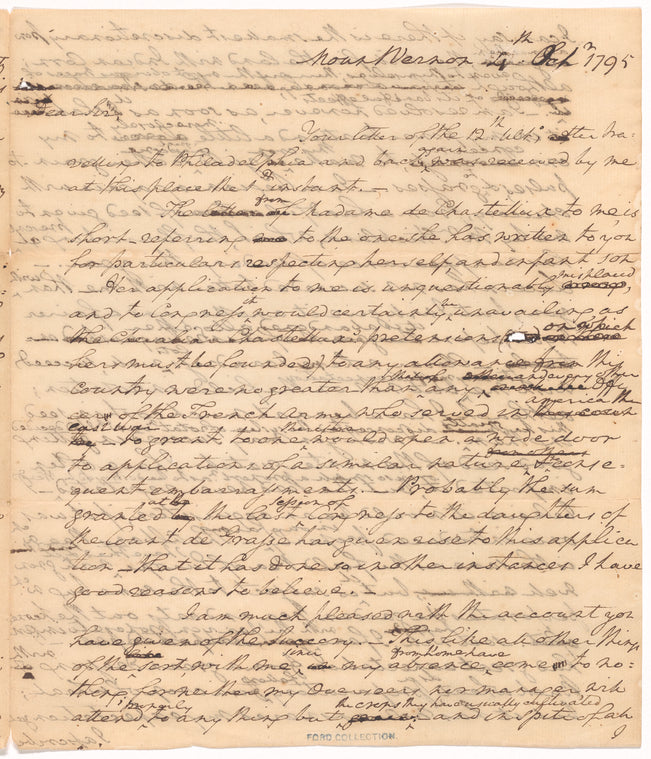 Mount Vernon 4th Octr 1795
Dear Sir,
Your letter of the 12th Ulto, after tra-
velling to Philadelphia and back again was received by me
at this place the 1st instant.—
The letter from Madame de Chastellux to me, is
short—referring me to the one she has written to you
for particulars respecting herself and infant son
—Her application to me is unquestionably misplaced,
and to Congress it would certainly be unavailing as
the Chevalier Chastellux's pretensions (on which
hers must be founded) to any allowance from this
country were no greater than that of any, and every other Offi-
cer of the French Army who served in America the
last war to grant to one therefore would open a wide door
to applications of a similar nature, & conse-
quent embarrassments.—Probably, the sum
granted at the last session of Congress to the daughters of
the Count de Grasse has given rise to this applica
tion—that it has done so in other instances I have
good reasons to believe.—
I am much pleased with the account you
have given of the Succory. This like all other things
of the sort with me, since my absence from home have come to no-
thing for neither my Overseers nor manager will
attend properly to any thing but the crops they have usually cultivated and in spite of all
I
FORD COLLECTION.